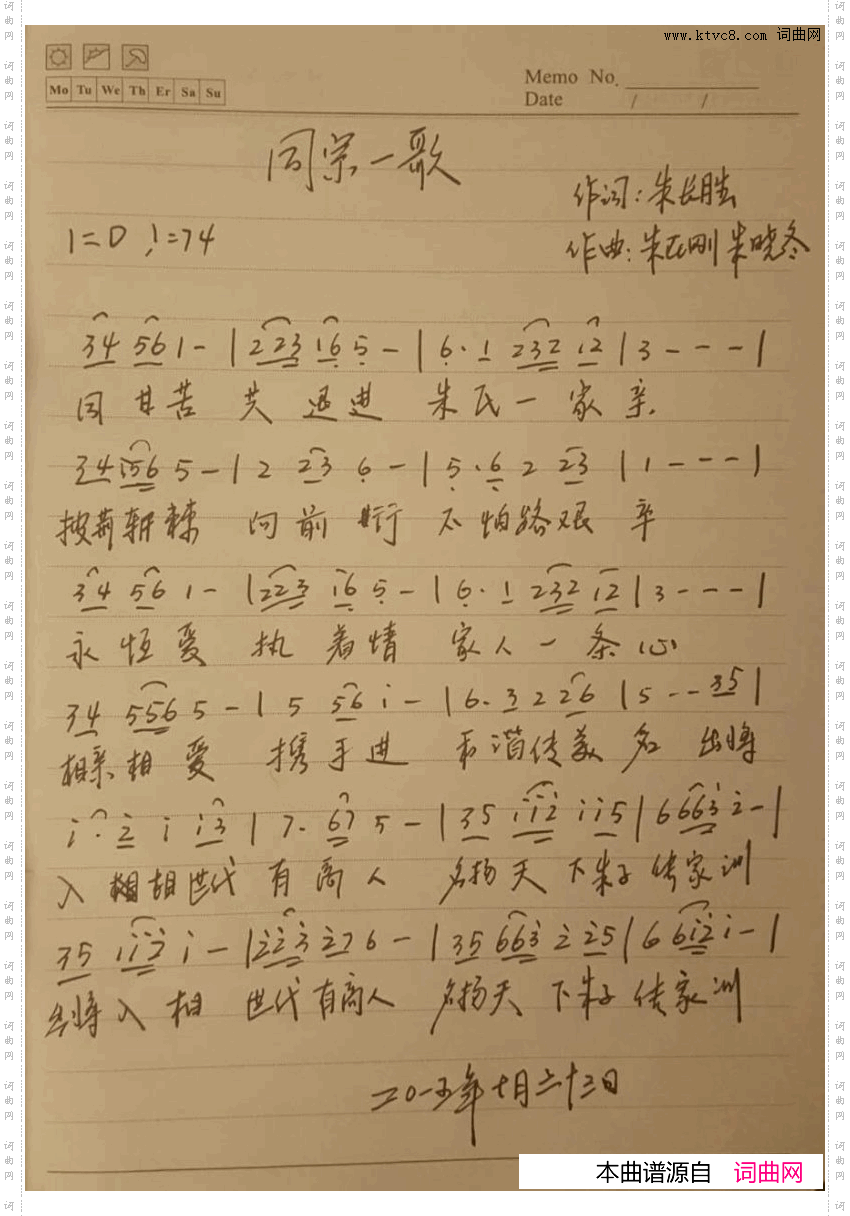 www.ktvc8.com 词曲网
Memo No.
Mo Tu We Th Er Sa Su
Date / /
同宗一歌
作词:朱长胜
1=D ♩=74
作曲:朱正刚 朱晓冬
34 56 1 - | 2 223 16 5 - | 6· 1 232 12 | 3 - - - |
同甘苦 共 迅进 朱氏一家亲
34 i56 5 - | 2 23 6 - | 5·6 2 23 | 1 - - - |
披荆斩棘 向前行 不怕路艰辛
34 56 1 - | 223 16 5 - | 6· 1 232 12 | 3 - - - |
永恒爱 执着情 家人一条心
34 556 5 - | 5 56 i - | 6·3 2 26 | 5 - - 35 |
相亲相爱 携手进 和谐传美名 出将
i· 2 i i3 | 7· 67 5 - | 35 ii2 i i5 | 6 663 2 - |
入相 世代有商人 名扬天下朱子传家训
35 ii2 i - | 223 27 6 - | 35 663 2 25 | 6 6i2 i - |
出将入相 世代有商人 名扬天下朱子传家训
二〇一五年七月二十三日
本曲谱源自 词曲网